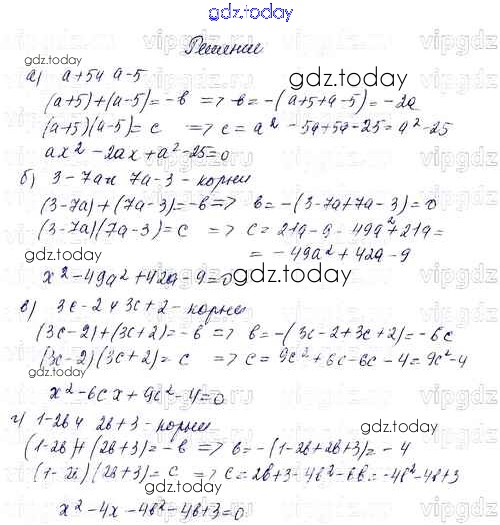 gdz.today
Решение
а) a+5 и a-5
gdz.today
(a+5)+(a-5)=-в => в=-(a+5+a-5)=-2a
(a+5)(a-5)=c => c=a²-5a+5a-25=a²-25
ax²-2ax+a²-25=0
б) 3-7a и 7a-3 - корни
(3-7a)+(7a-3)=-в => в=-(3-7a+7a-3)=0
(3-7a)(7a-3)=c => c=21a-9-49a²+21a=
gdz.today
=-49a²+42a-9
x²-49a²+42a-9=0
gdz.today
в) 3c-2 и 3c+2 - корни
(3c-2)+(3c+2)=-в => в=-(3c-2+3c+2)=-6c
(3c-2)(3c+2)=c => c=9c²+6c-6c-4=9c²-4
gdz.today
x²-6cx+9c²-4=0
gdz.today
г) 1-2в и 2в+3 - корни
(1-2в)+(2в+3)=-в => в=-(1-2в+2в+3)=-4
(1-2в)(2в+3)=c => c=2в+3-4в²-6в=-4в²-4в+3
gdz.today
gdz.today
x²-4x-4в²-4в+3=0